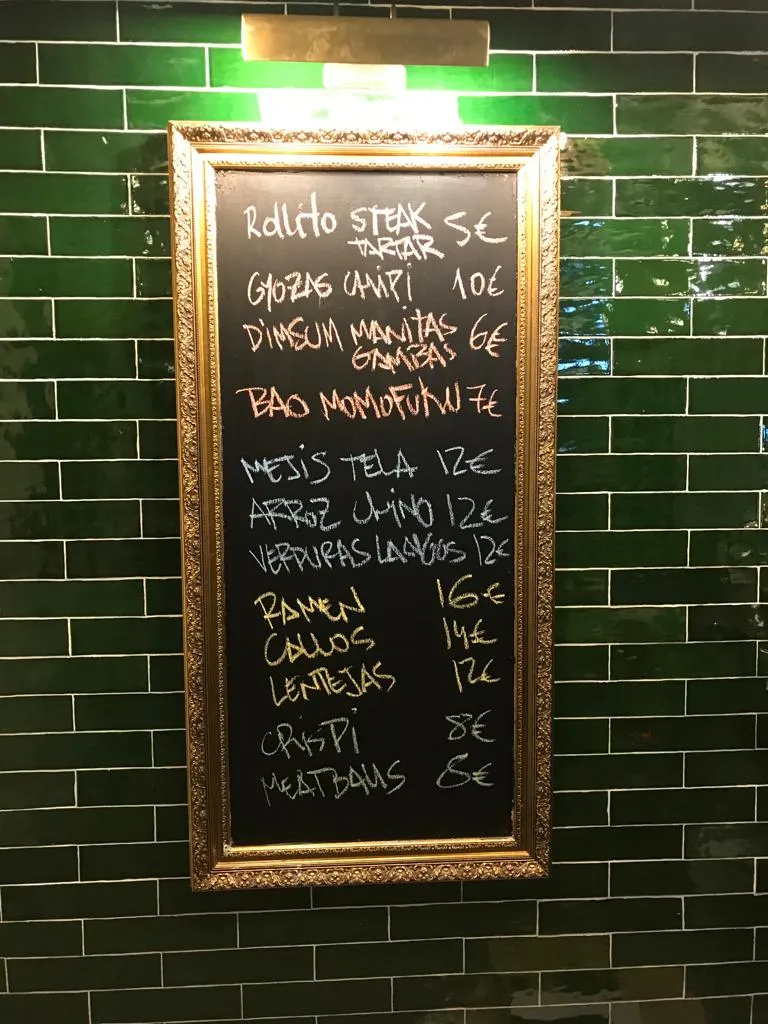 Rollito STEAK TARTAR 5€
GYOZAS CAMPI 10€
DIMSUM MANITAS GAMBAS 6€
BAO MOMOFUKU 7€
MEJIS TELA 12€
ARROZ CHINO 12€
VERDURAS 12€
RAMEN 16€
CALLOS 14€
LENTEJAS 12€
CRISPI 8€
MEATBALLS 8€